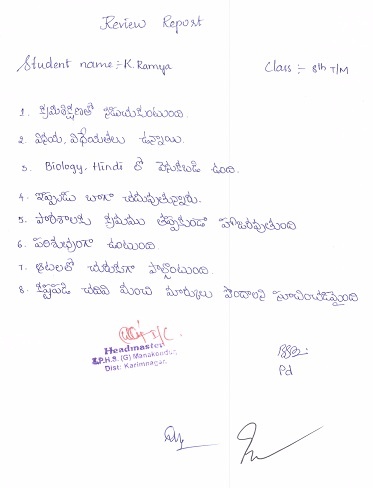 Review Report
Student name :- K. Ramya Class :- 8th T/M
1. క్రమశిక్షణతో నడుచుకుంటుంది.
2. వినయ, విధేయతలు ఉన్నాయి.
3. Biology, Hindi లో వెనుకబడి ఉంది.
4. ఇప్పుడు బాగా చదువుతున్నారు.
5. పాఠశాలకు క్రమము తప్పకుండా హాజరవుతుంది
6. పరిశుభ్రంగా ఉంటుంది.
7. ఆటలలో చురుకుగా పాల్గొంటుంది.
8. కష్టపడి చదివి మంచి మార్కులు పొందాలని సూచించడమైంది
I/C
Headmaster
Z.P.H.S. (G) Manakondur,
Dist: Karimnagar.
Pd